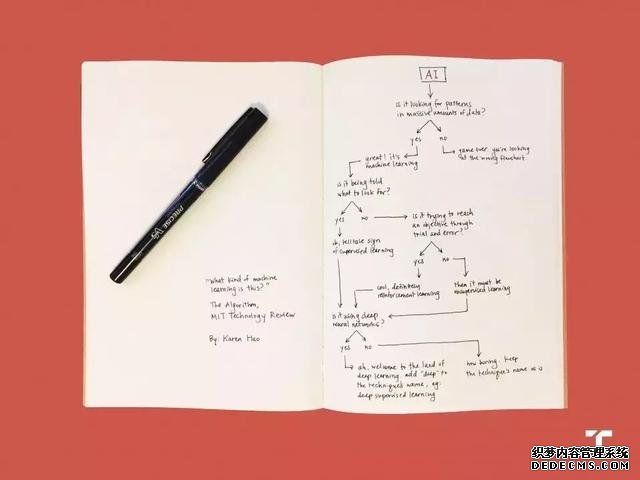 PRECISE V5
"What kind of machine
learning is this?"
The Algorithm,
MIT Technology Review
By: Karen Hao
AI
is it looking for patterns
in massive amounts of data?
yes
no
great! it's
machine learning
game over. you're looking
at the wrong flowchart.
is it being told
what to look for?
yes
no
is it trying to reach
an objective through
trial and error?
oh, telltale sign
of supervised learning
yes
no
cool, definitely
reinforcement learning
then it must be
unsupervised learning
is it using deep
neural networks?
yes
no
ah, welcome to the land of
deep learning. add "deep" to
the technique's name, eg:
deep supervised learning
how boring. keep
the technique's name as is
织梦内容管理系统
DEDECMS.COM